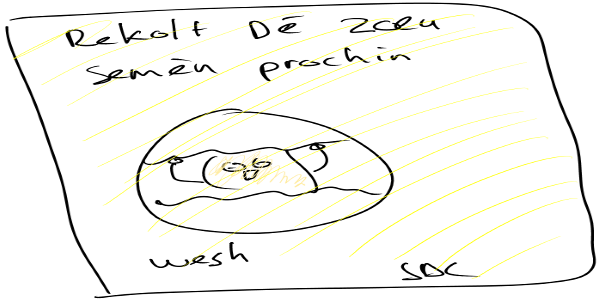 Rekolt Dē zœu
semēn prochin
wesh
SDC